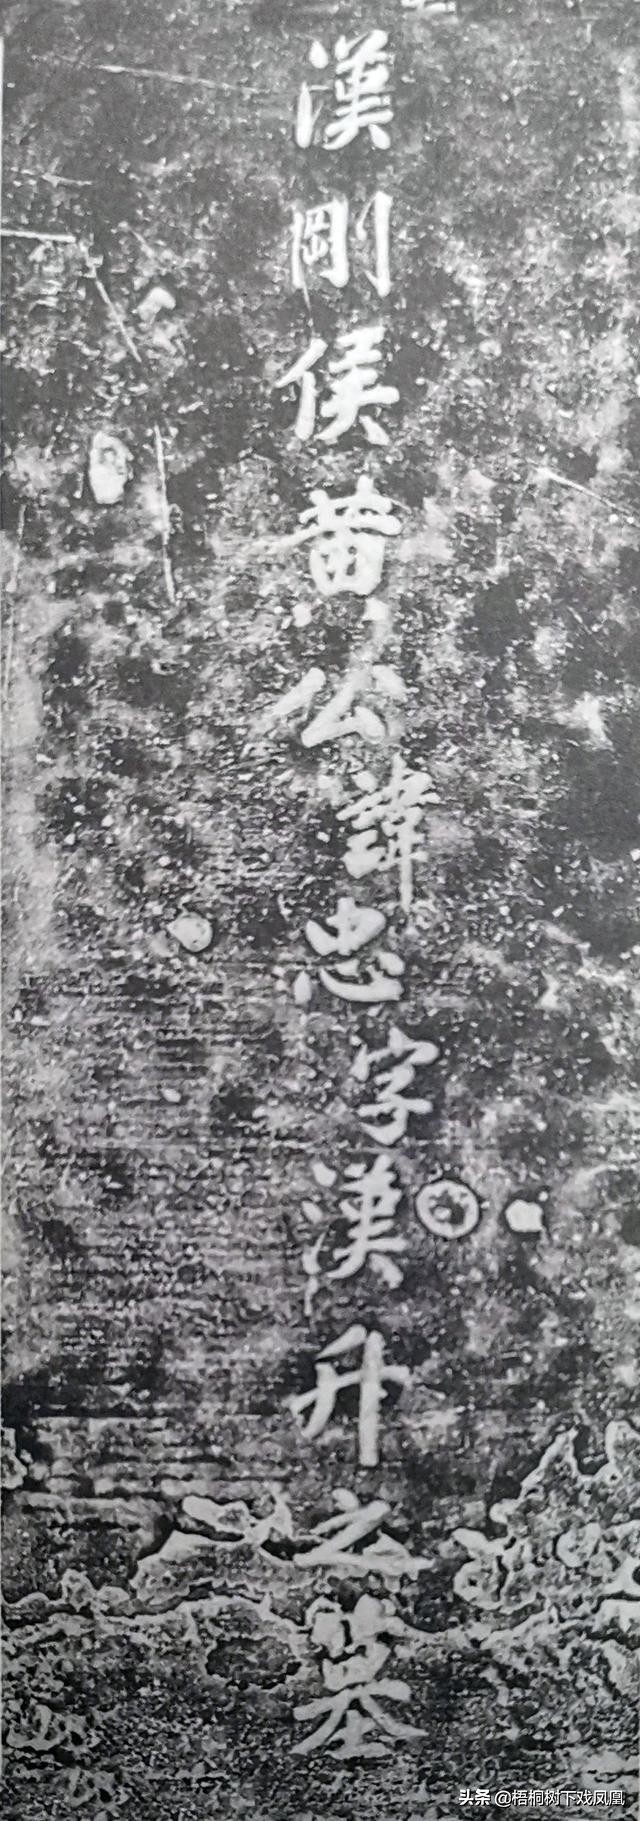 漢剛侯黄公諱忠字漢升之墓
头条 @梧桐树下戏凤凰